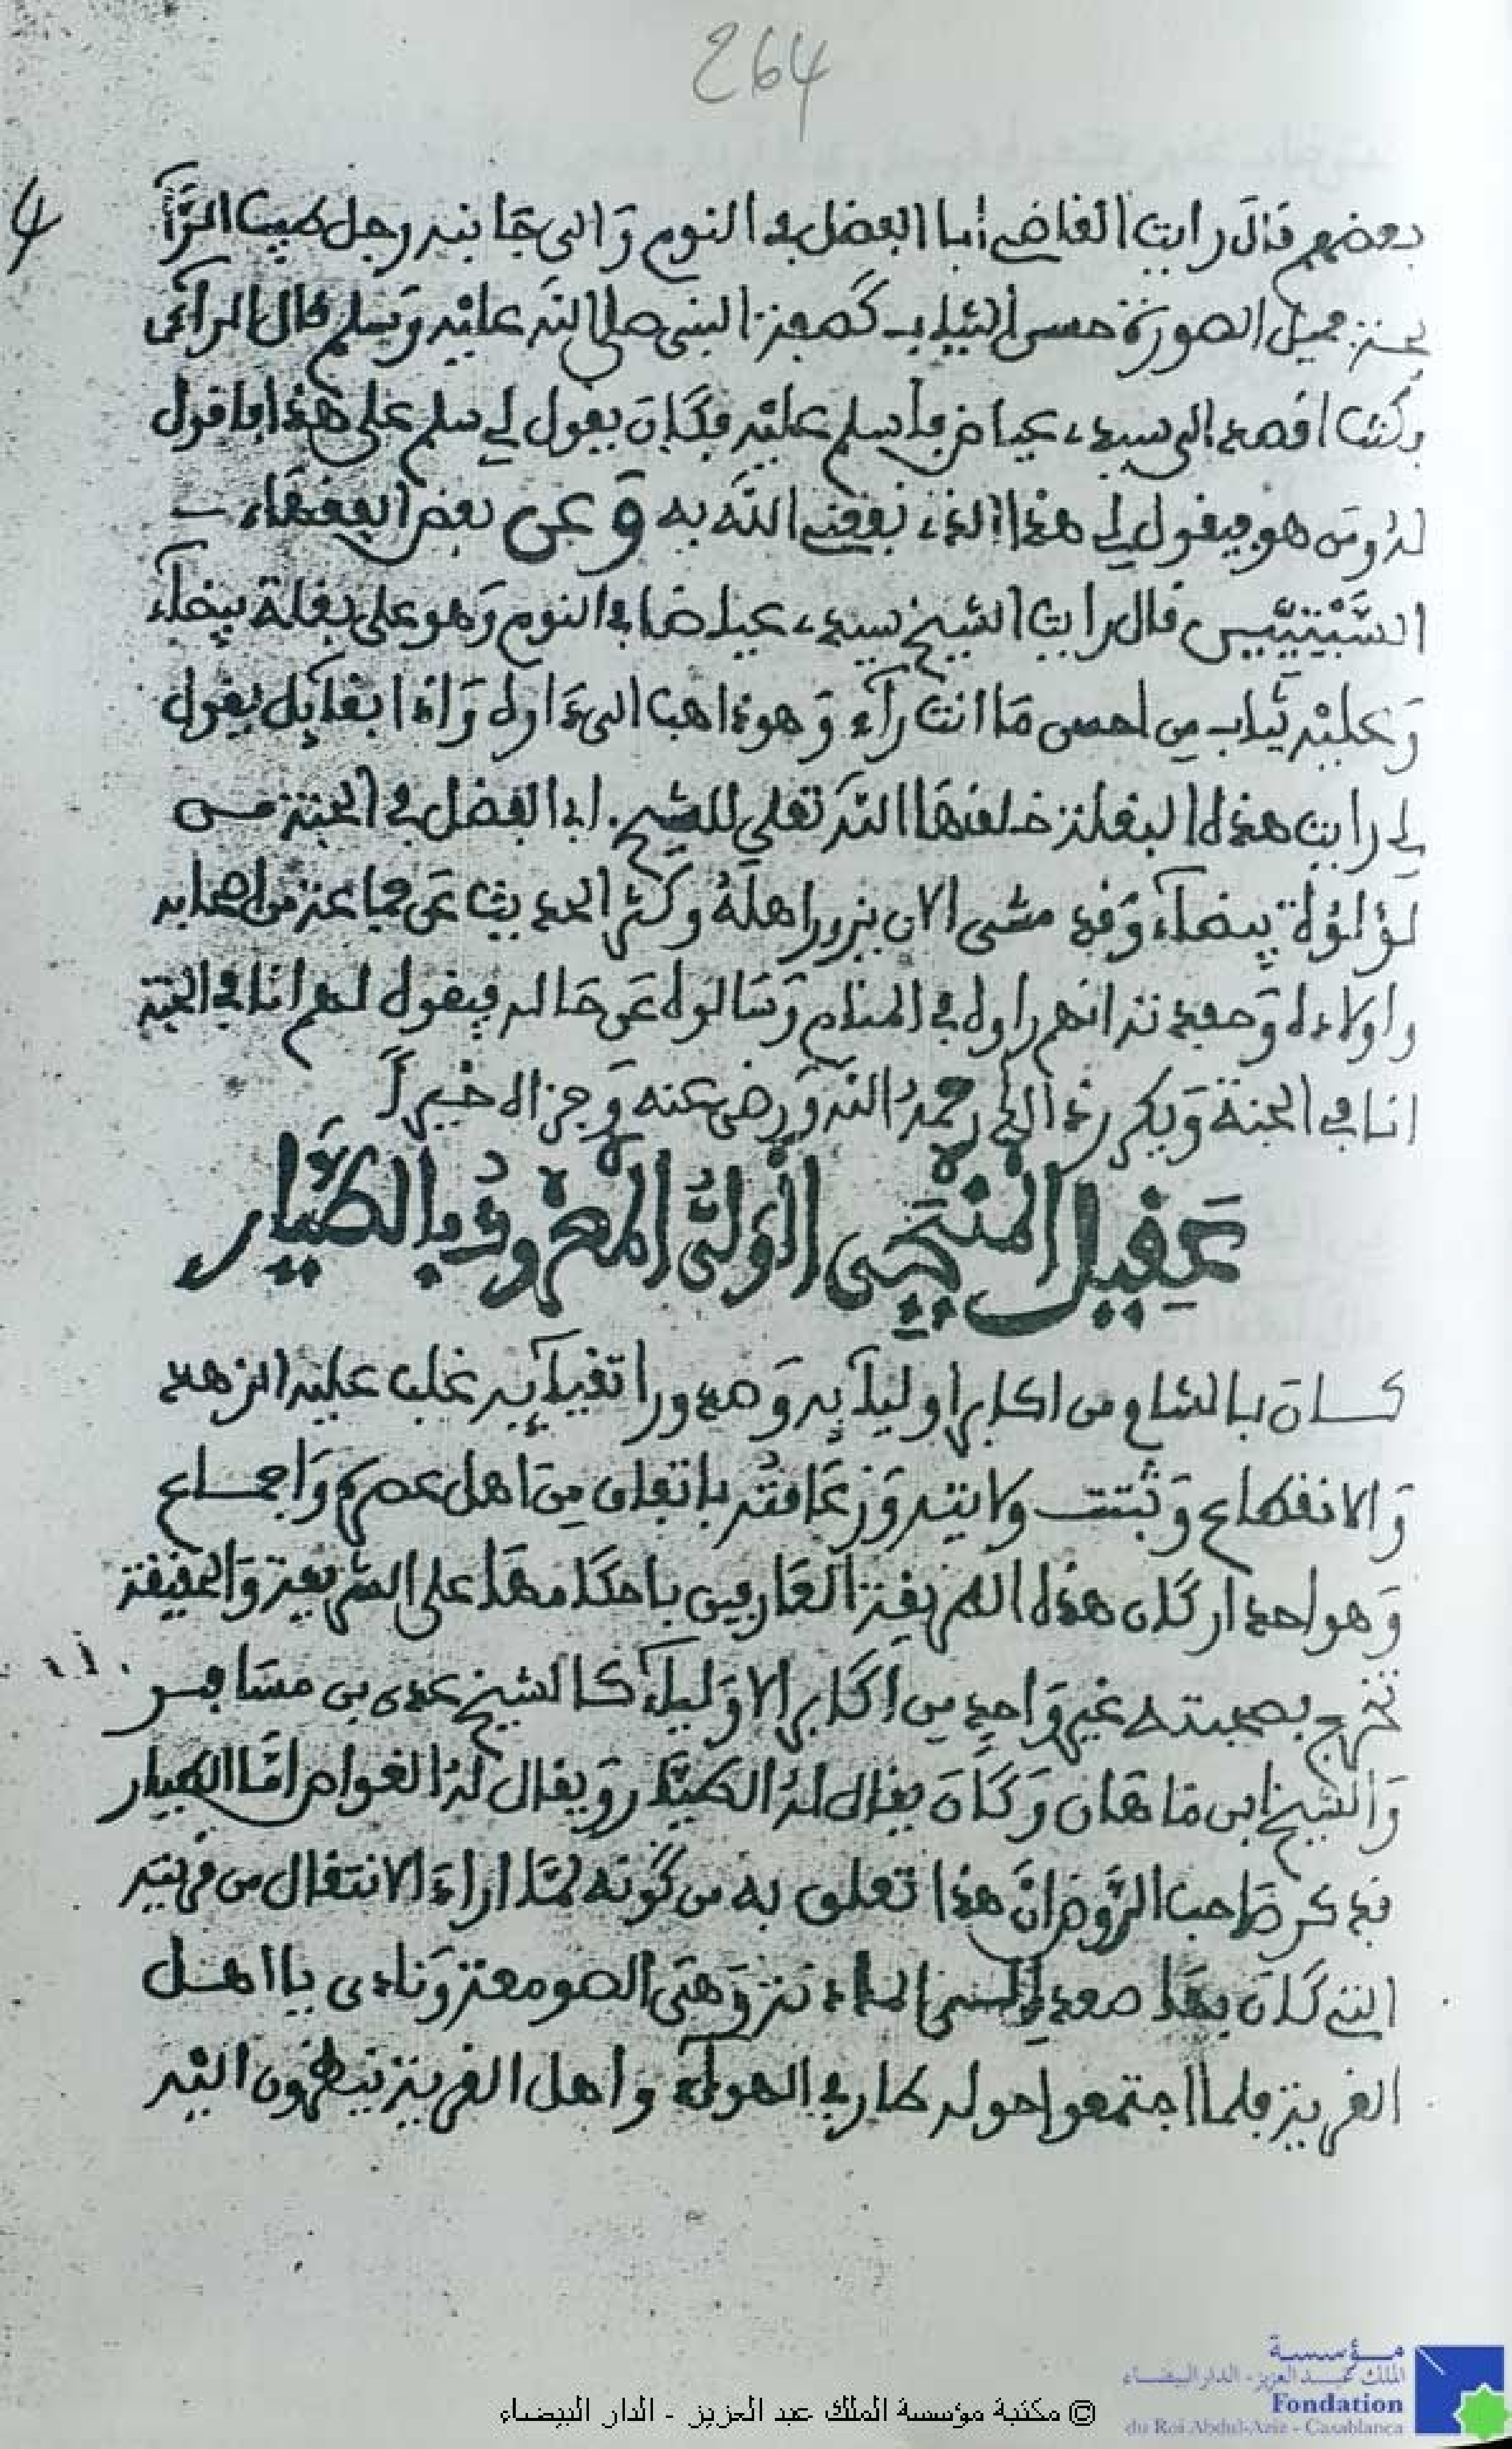 264
4
بعضهم قال رايت القاضي أبا الفضل في النوم وَالى جَانبه رجل طيب الرَّا
يحة جميل الصورة حسن الثياب كَصفة النبي صلى الله عليه وَسلم قال الرآئى
وكنت اقصد الى سيدي عياض فأسلم عليه فكان يقول لي سلم على هذا فاقول
له وَمن هو فيقول لي هذا الذي نفعني الله به وَعن بعض الفقهاء
السَّبْتِيِّيِن قال رايت الشيخ سيدي عياضا في النوم وَهو على بغلة بيضآء
وَعليْه ثياب من احسن مَا انت رآء وَهو ذاهب الى داره وَاذا بقآيل يقول
لي رايت هذه البغلة خلقهَا الله تعلى للشيخ ابي الفضل في الجنة من
لؤلؤة بيضآء وَقد مشى الان يزور اهلَهُ وكثر الحديث عَن جماعة من اصحابه
واولاده وَحفدته انهم راوه في المنام وَسَالوه عَن حَاله فيقول لهم انا في الجنة
انا في الجنة وَيكرر ذالك رحمهُ الله وَرضي عنه وَجزاه خيراً
عَقِيل المَنْبِجِي الْوَلِيُّ المْعْرُوفُ بالطَّيَّار
كان بالشام من اكابر اوليآيه وَصدور اتقيآيه غلب عليه الزهد
وَالانقطاع وَثبتت ولايته وَزعَامته باتفاق مِن اهل عصره وَاجماع
وَهو احد اركان هذه الطريقة العَارفين باحكامهَا على الشريعة وَالحقيقة
تخرج بصحبته غير وَاحدٍ مِن اكَابر الاوَليآء كالشيخ عدي بن مسَافر
وَالشيخ ابن مَاهان وَكَانَ يقال لهُ الطيَّار وَيقال لهُ الغواص امَّا الطيار
فذكر صَاحب الرَّوض انَّ هذا تعلق به من كونه لمَّا اراد الانتقال من قريته
التي كَان بهَا صعد الى المنارة وَهي الصومعة وَنادى يا اهل
القرية فلما اجتمعوا حوله طار في الهوآء واهل القرية ينظرون اليه
© مكتبة مؤسسة الملك عبد العزيز - الدار البيضاء
مؤسسة
الملك عبد العزيز - الدار البيضاء
Fondation
du Roi Abdul-Aziz - Casablanca